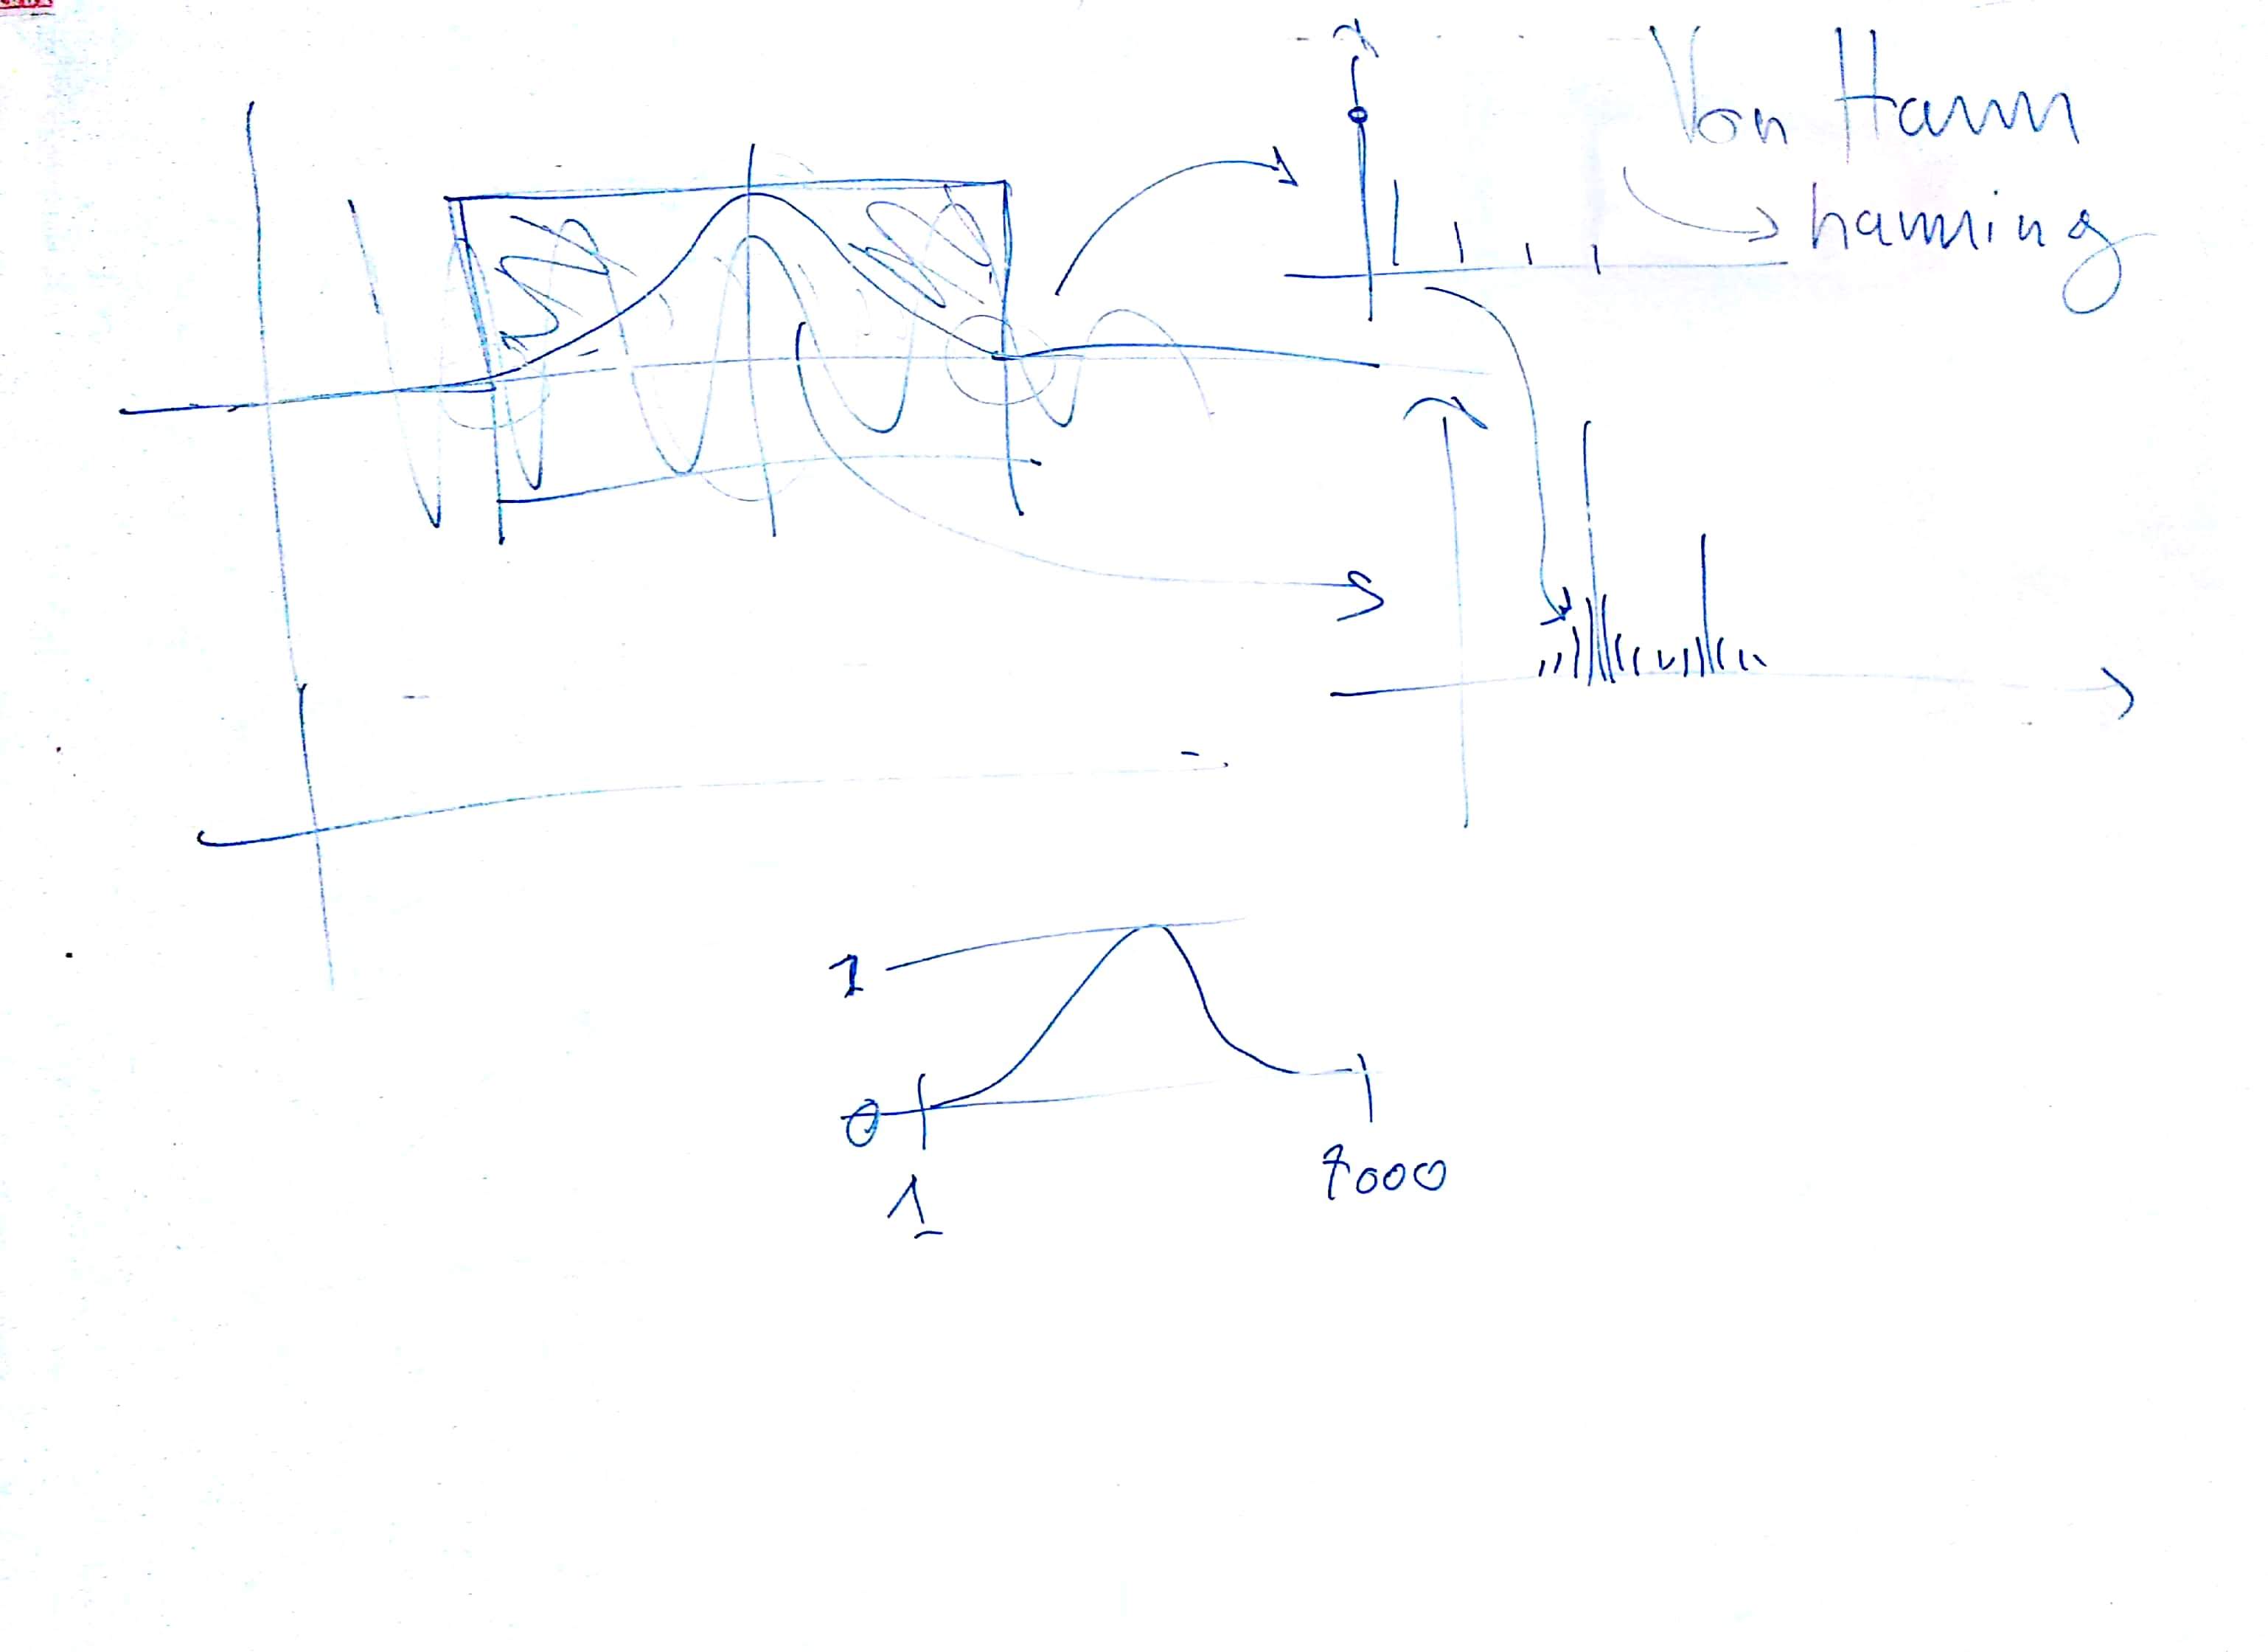 Von Hann
hanning
1
0
1
1000